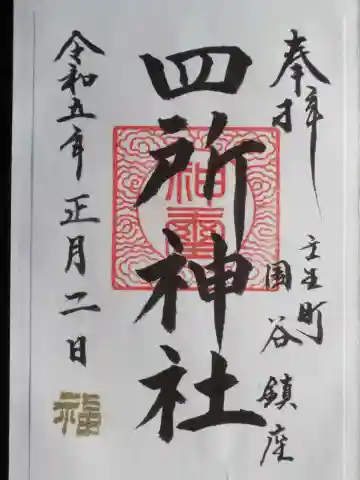 奉拝
壬生町
国谷鎮座
四所神社
神璽
令和五年正月二日
福